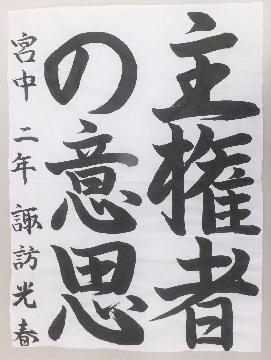 主権者
の意思
宮中 二年 諏訪光春